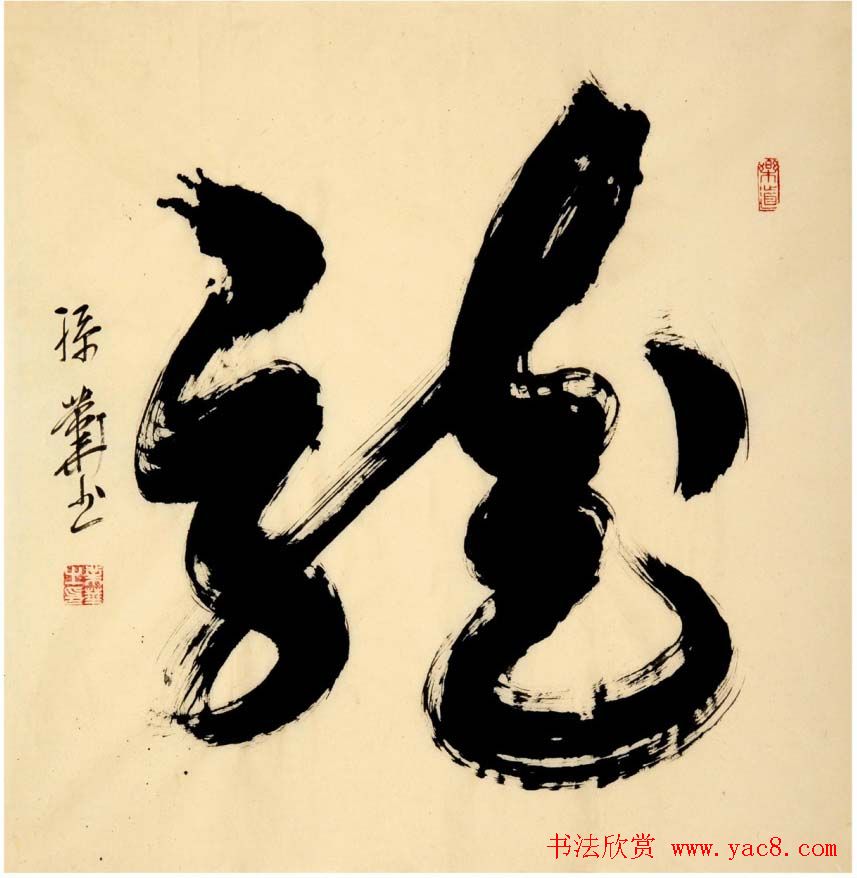 龍
樂道
孫
书法欣赏 www.yac8.com